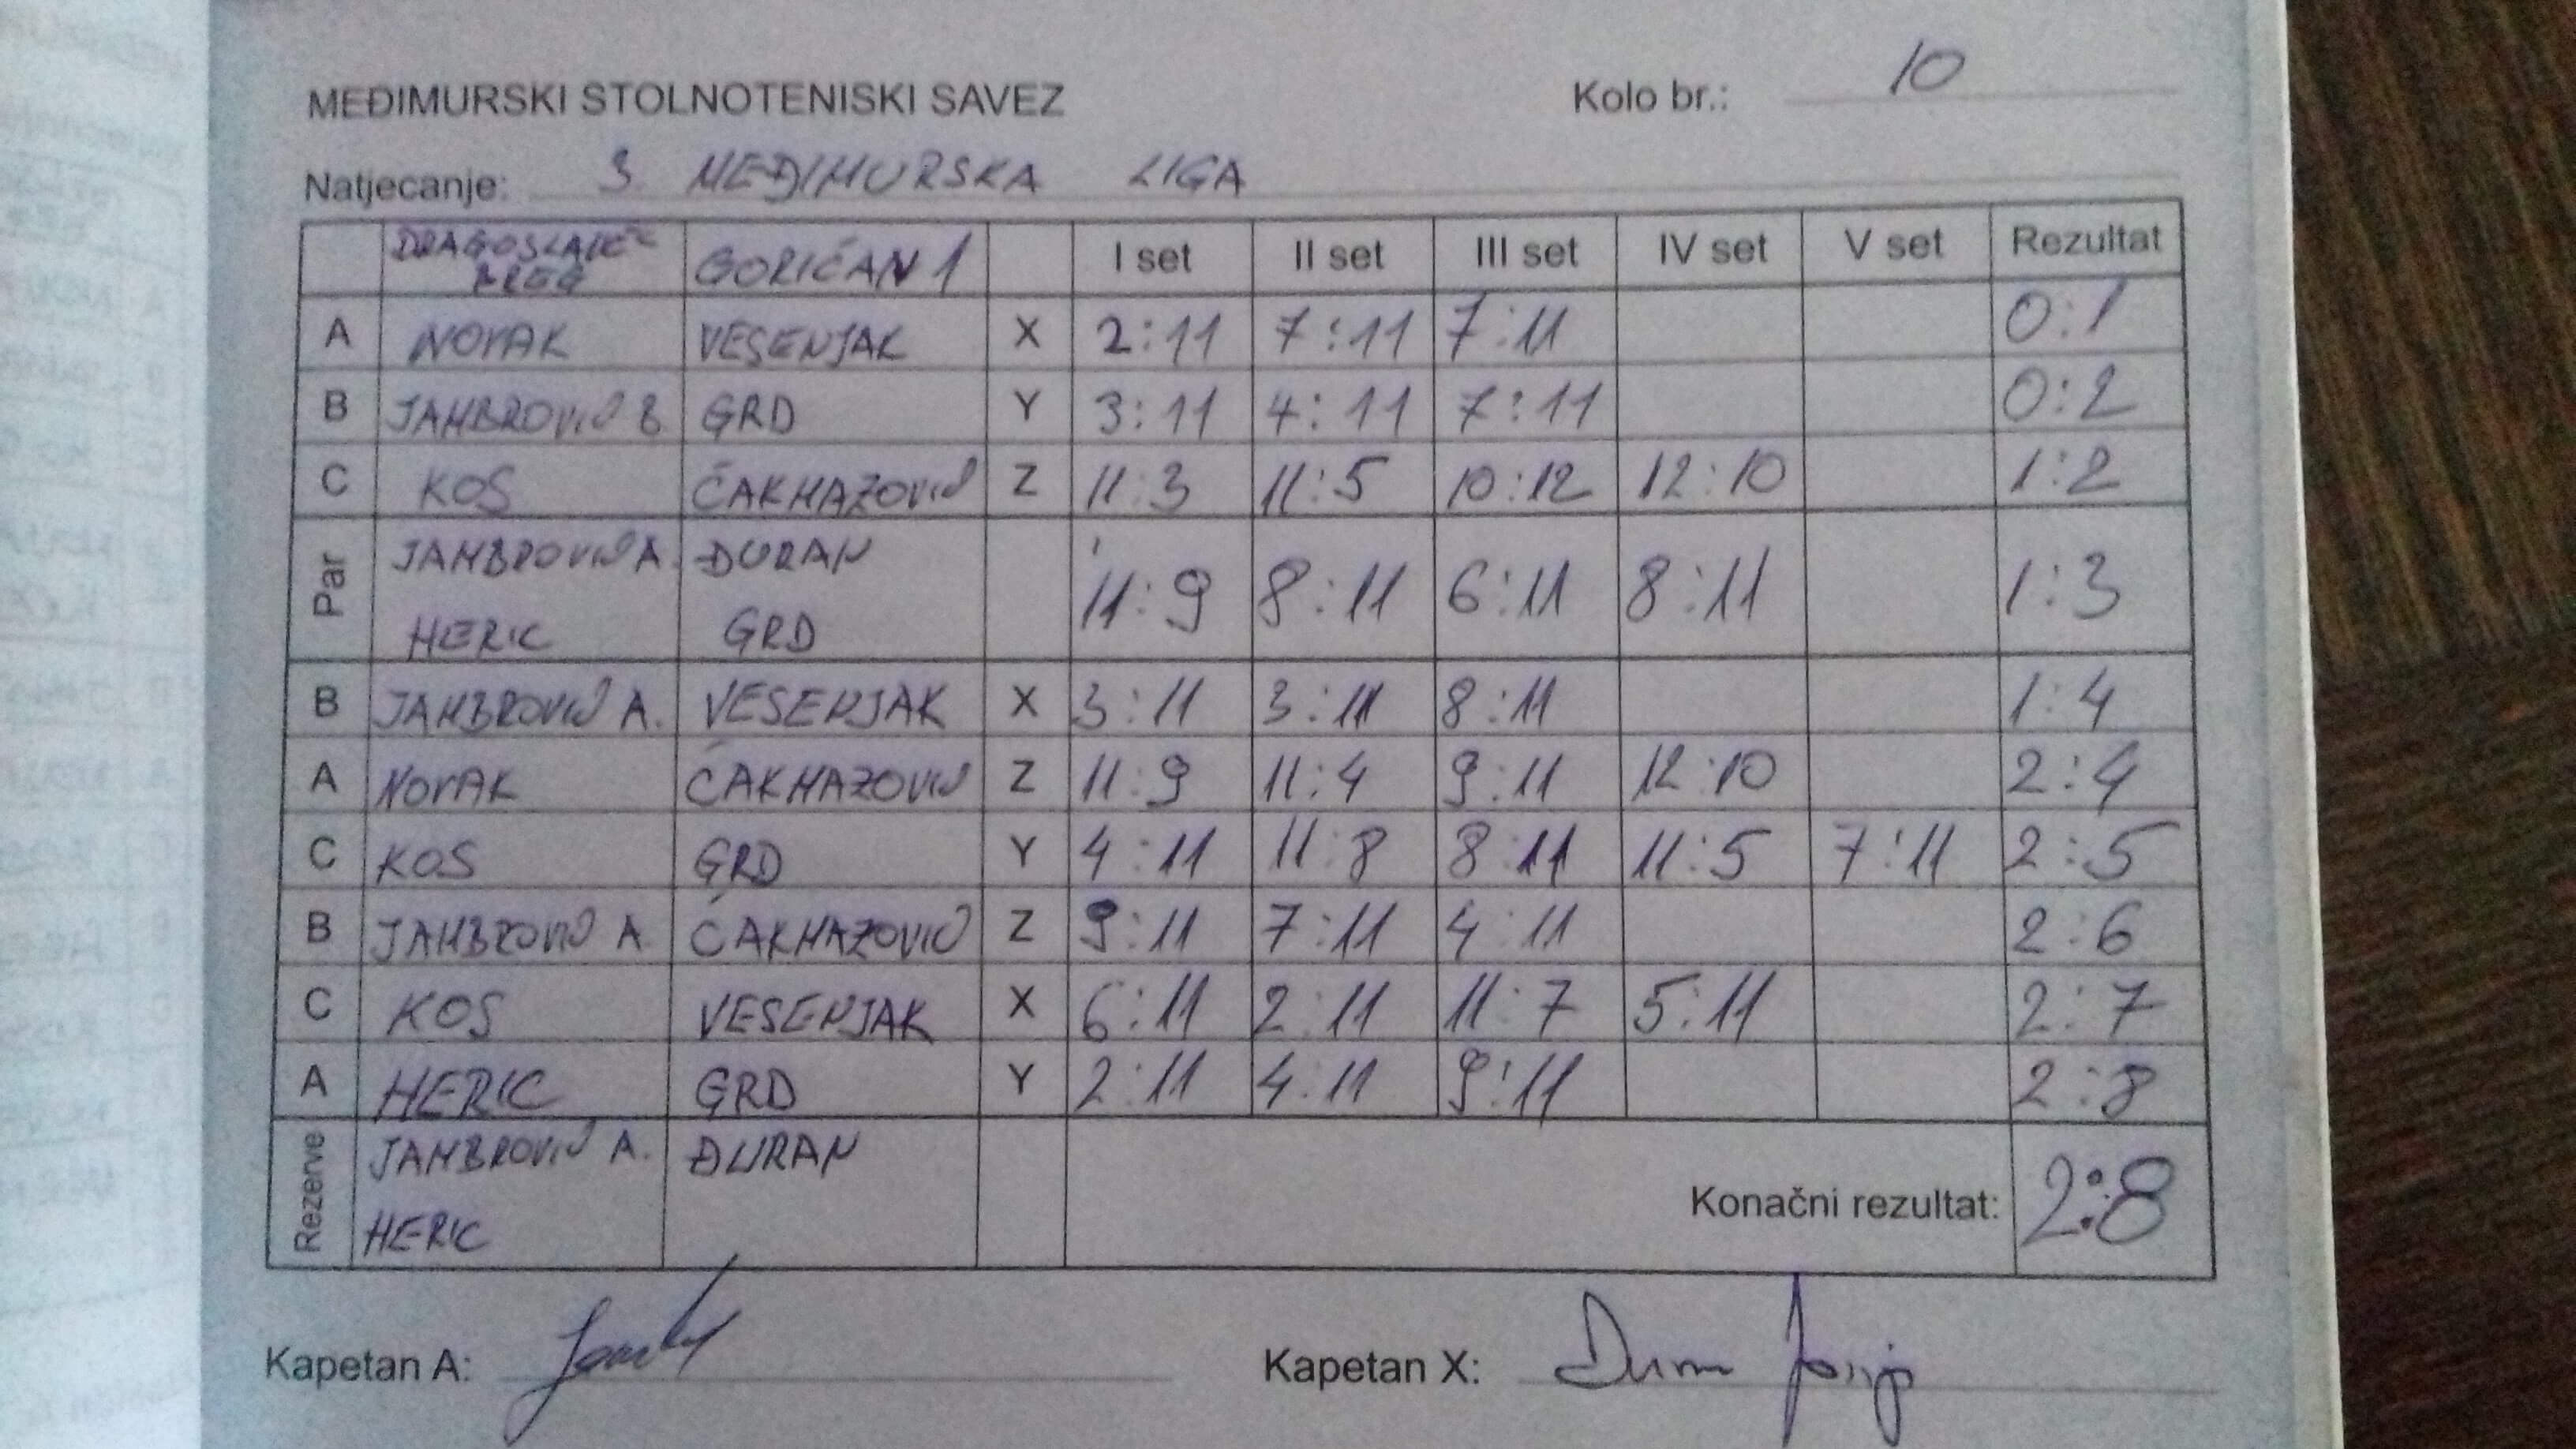 MEĐIMURSKI STOLNOTENISKI SAVEZ Kolo br.: 10
Natjecanje: 3. MEĐIMURSKA LIGA
DRAGOSLAVEČ BREG GORIČAN 1 I set II set III set IV set V set Rezultat
A NOVAK VESENJAK X 2:11 7:11 7:11 0:1
B JAMBROVIĆ B GRD Y 3:11 4:11 7:11 0:2
C KOS ČAKMAZOVIĆ Z 11:3 11:5 10:12 12:10 1:2
Par JAMBROVIĆ A. ĐURAN 11:9 8:11 6:11 8:11 1:3
HERIC GRD
B JAMBROVIĆ A. VESENJAK X 3:11 3:11 8:11 1:4
A NOVAK ČAKMAZOVIĆ Z 11:9 11:4 9:11 12:10 2:4
C KOS GRD Y 4:11 11:8 8:11 11:5 7:11 2:5
B JAMBROVIĆ A. ČAKMAZOVIĆ Z 9:11 7:11 4:11 2:6
C KOS VESENJAK X 6:11 2:11 11:7 5:11 2:7
A HERIC GRD Y 2:11 4:11 9:11 2:8
Rezerve JAMBROVIĆ A. ĐURAN
HERIC
Konačni rezultat: 2:8
Kapetan A: Kapetan X: